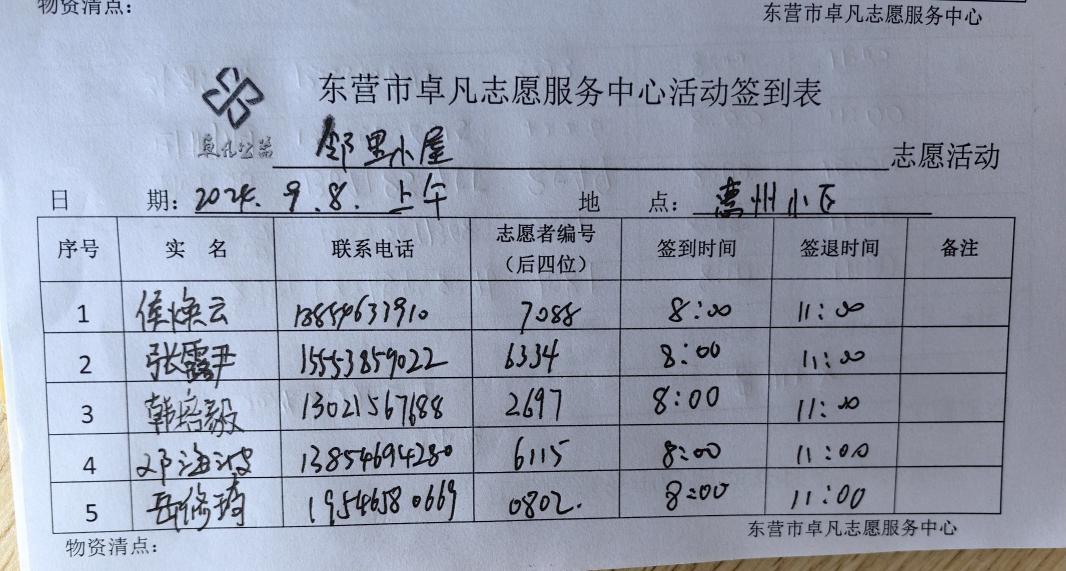 物资清点：
东营市卓凡志愿服务中心
东营市卓凡志愿服务中心活动签到表
卓凡公益
邻里小屋 志愿活动
日 期：2024. 9. 8. 上午 地 点：惠州小区
序号 实 名 联系电话 志愿者编号（后四位） 签到时间 签退时间 备注
1 侯焕云 13854631910 7088 8:00 11:00
2 张露尹 15553859022 6334 8:00 11:00
3 韩培毅 13021567688 2697 8:00 11:00
4 邓海波 13854694280 6115 8:00 11:00
5 岳修琦 19546580669 0802. 8:00 11:00
物资清点：
东营市卓凡志愿服务中心